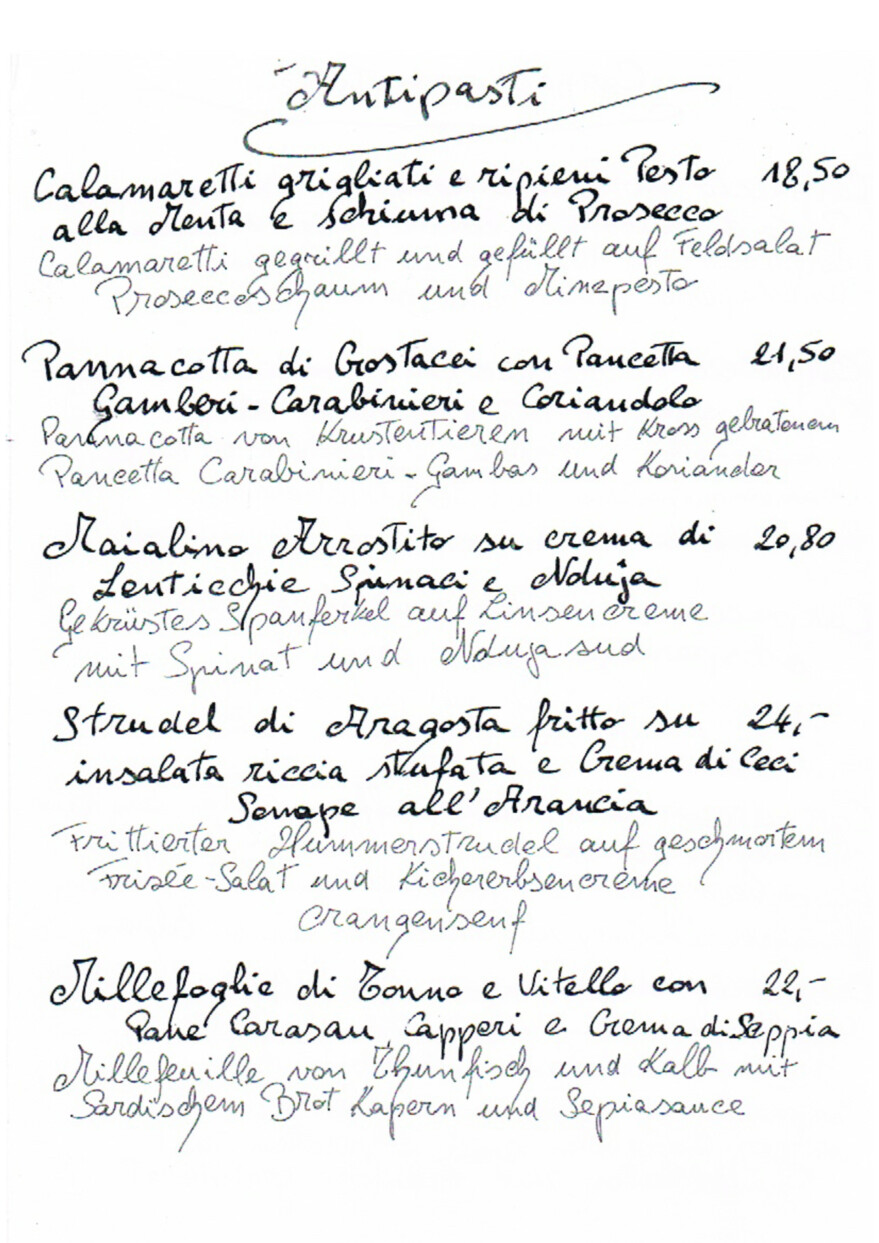 Antipasti
Calamaretti grigliati e ripieni Pesto 18,50
alla Menta e Schiuma di Prosecco
Calamaretti gegrillt und gefüllt auf Feldsalat
Proseccoschaum und Minzpesto
Pannacotta di Crostacei con Pancetta 21,50
Gamberi-Carabinieri e Coriandolo
Pannacotta von Krustentieren mit Kross gebratenem
Pancetta Carabinieri-Gambas und Koriander
Maialino Arrostito su crema di 20,80
Lenticchie Spinaci e Nduja
Gekrüstes Spanferkel auf Linsencreme
mit Spinat und Ndujasud
Strudel di Aragosta fritto su 24,-
insalata riccia stufata e Crema di Ceci
Senape all'Arancia
Frittierter Hummerstrudel auf geschmortem
Frisée-Salat und Kichererbsencreme
Orangensenf
Millefoglie di Tonno e Vitello con 22,-
Pane Carasau, Capperi e Crema di Seppia
Millefeuille von Thunfisch und Kalb mit
Sardischem Brot Kapern und Sepiasauce